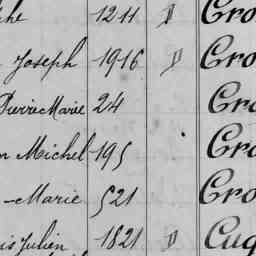 phe 1211 " Cro
Joseph 1916 " Cro
Pierre Marie 24 Cro
n Michel 195 Cro
-Marie 521 Cro
is Julien 1821 " Cug